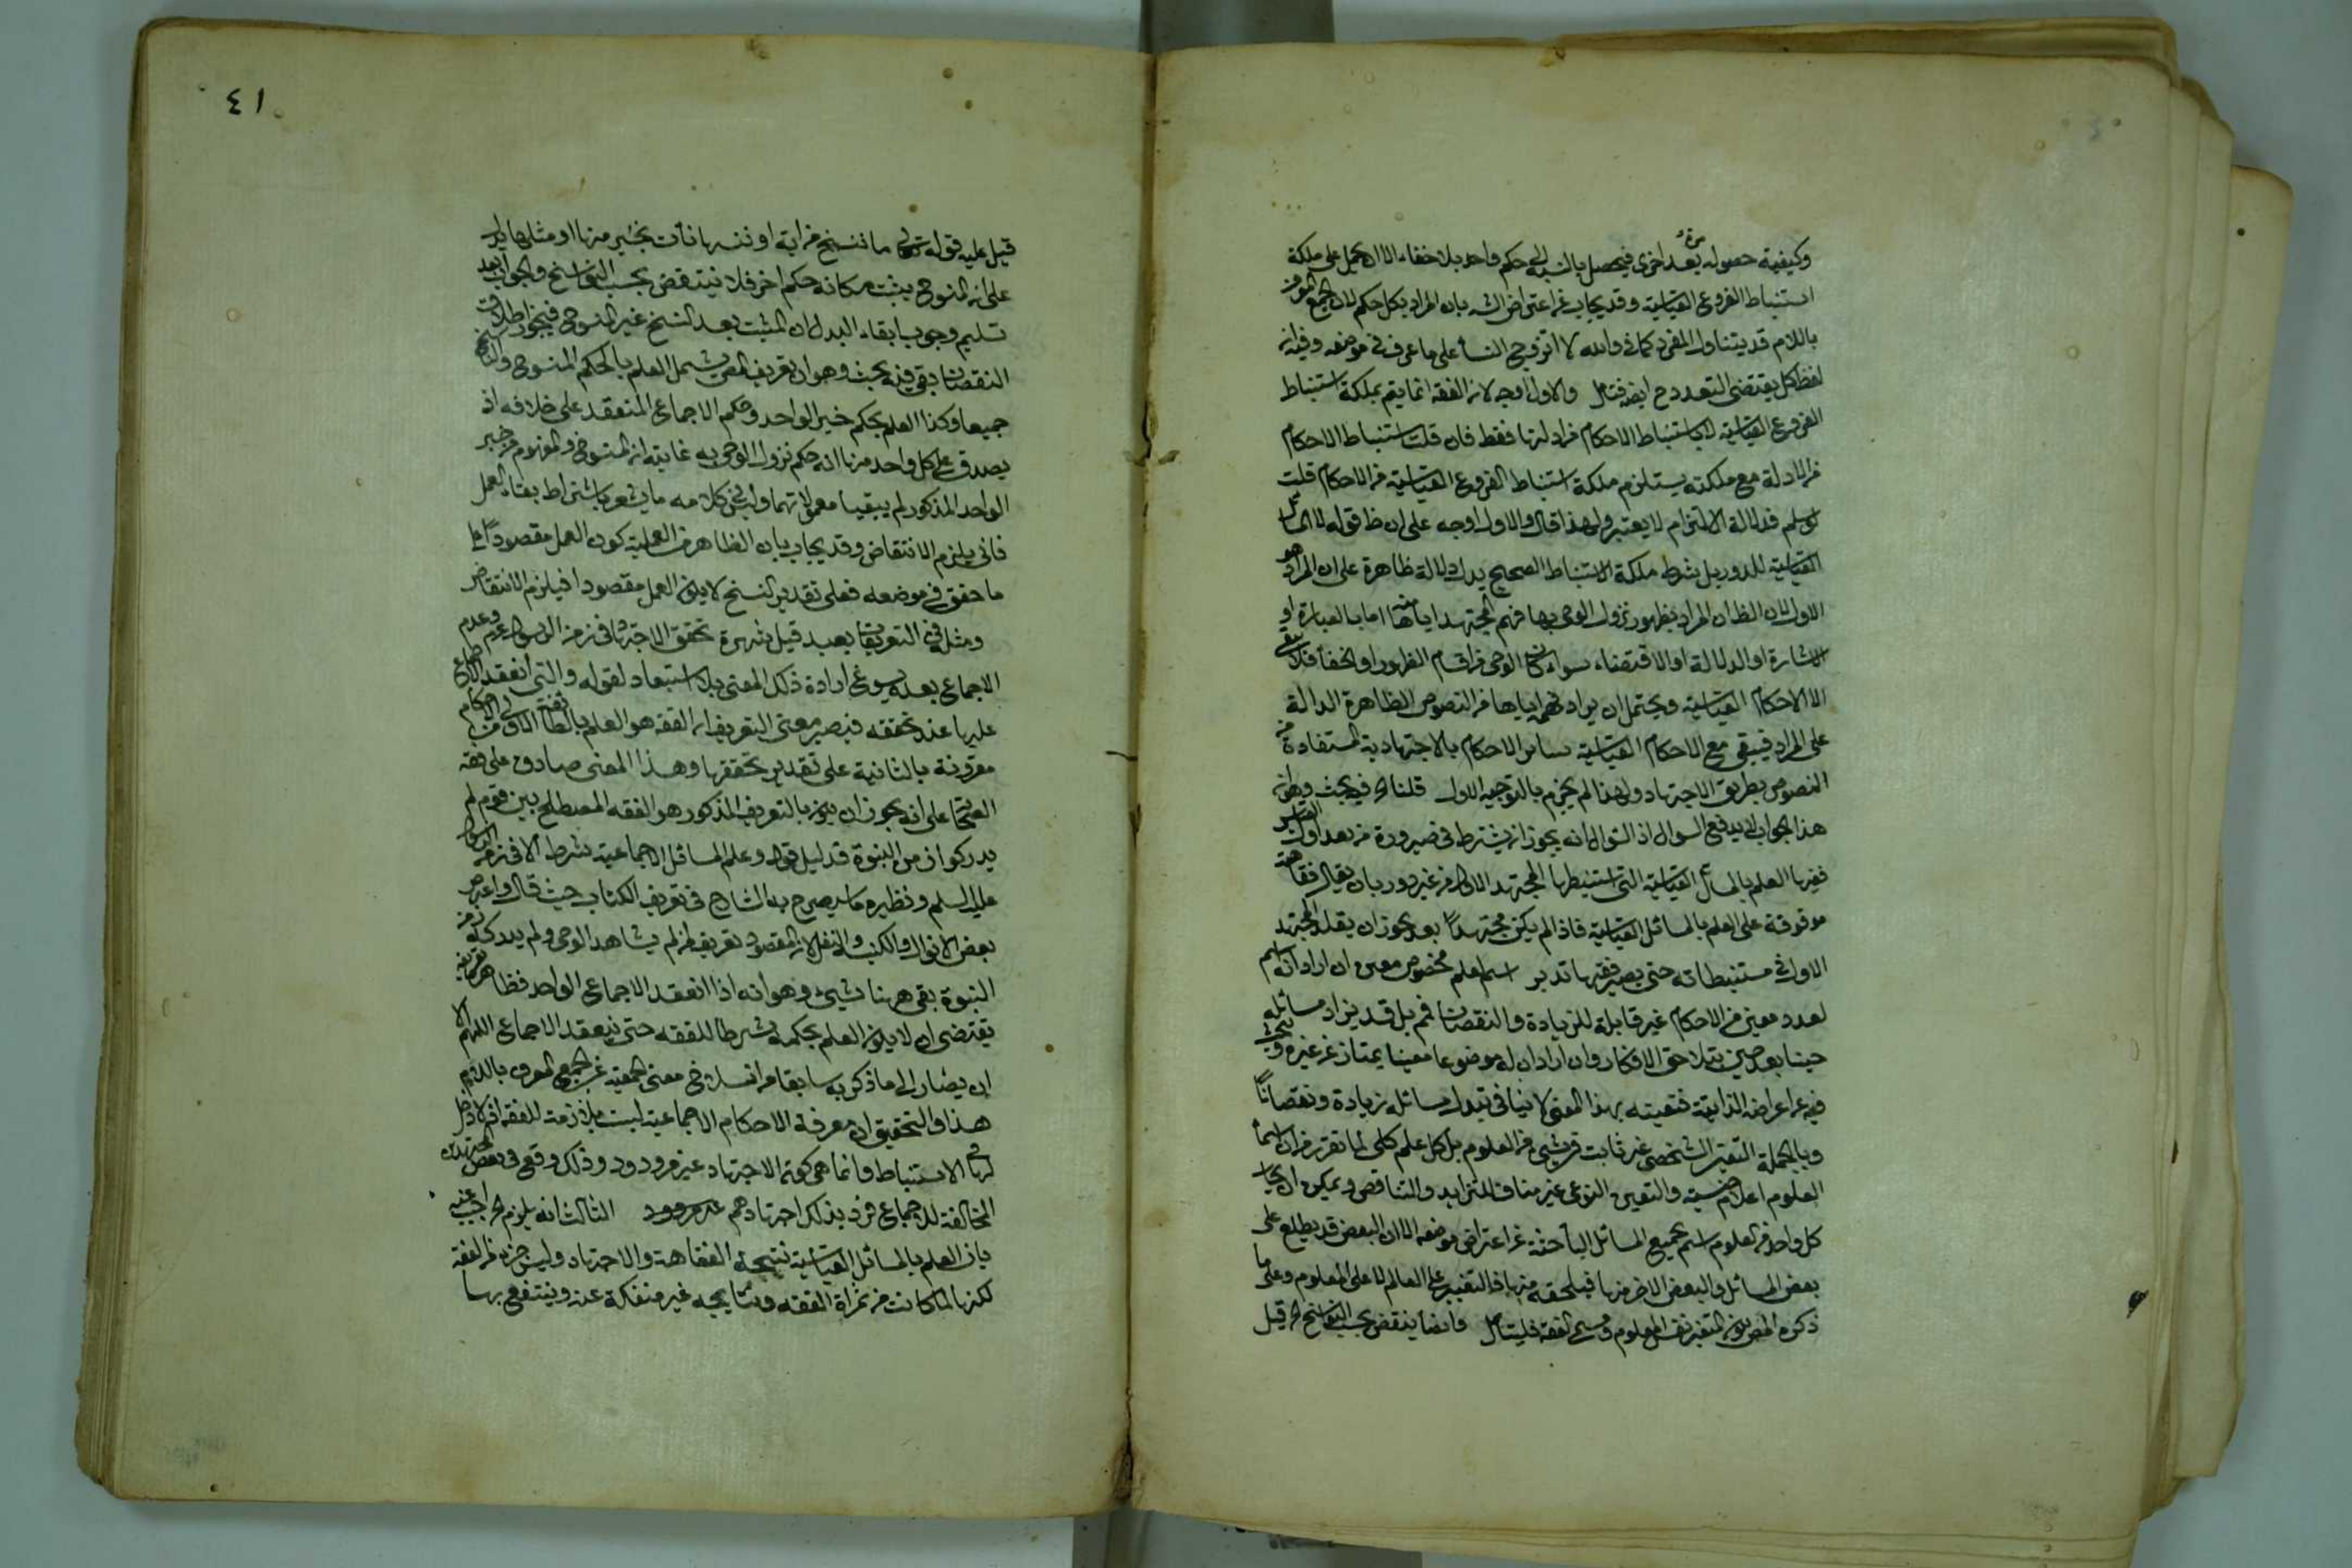 وكيفية حصوله مرة بعد اخرى فيحصل بالنسبة الى حكم واحد بلا خفاء الا ان يحمل على ملكة
استنباط الفروع القياسية وقد يجاب عن اعتراض الش بان المراد بكل حكم لان الجمع المعرف
باللام قد يتناول المفرد كما في والله لا اتزوج النساء على ما عرف في موضعه وفيه ان
لفظ كل يقتضى التعدد ح ايضا فتأمل والاول اوجه لان الفقه انما يتم بملكة استنباط
الفروع القياسية لا باستنباط الاحكام من ادلتها فقط فان قلت استنباط الاحكام
من الادلة مع ملكته يستلزم ملكة استنباط الفروع القياسية من الاحكام قلت
لو سلم فدلالة الالتزام لا يعتبر ولهذا قال والاول اوجه على ان ظ قوله لا المسائل
القياسية للدور بل شرط ملكة الاستنباط الصحيح يدل دلالة ظاهرة على ان المراد هو
الاول لان الظ ان المراد بظهور نزول الوحى بها فهم المجتهد اياها منه اما بالعبارة او
الاشارة او الدلالة او الاقتضاء سواء كان الوحى من اقسام الظهور او الخفأ فلا يبقى
الا الاحكام القياسية ويحتمل ان يراد فهمه اياها من النصوص الظاهرة الدالة
على المراد فيبقى مع الاحكام القياسية سائر الاحكام بالاجتهادية المستفادة من
النصوص بطريق الاجتهاد ولهذا لم يجزم بالتوجيه الاول قلنا فيه بحث وهو ان
هذا الجواب لا يدفع السوال اذ السوال انه يجوز ان يشترط في صيرورة من بعد اول القايس
فقيها العلم بالمسائل القياسية التى استنبطها المجتهد الاول من غير دور بان يقال فقاهته
موقوفة على العلم بالمسائل القياسية فاذا لم يكن مجتهدا بعد يجوز ان يقلد المجتهد
الاول في مستنبطاته حتى يصير فقيها تدبر اسم لعلم مخصوص معين ان اراد انه اسم
لعدد معين من الاحكام غير قابلة للزيادة والنقصان فمم بل قد يزاد مسائله
حينا بعد حين بتلاحق الافكار وان اراد ان له موضوعا معينا يمتاز عن غيره ويبحث
فيه عن اعراضه الذاتية فتعينه بهذا المعنى لا ينافي تبدل مسائله زيادة ونقصانا
وبالجملة التعين الشخصى غير ثابت في شيئ من العلوم بل كل علم كلى لما تقرر من ان اسماء
العلوم اعلام جنسية والتعين النوعى غير مناف للتزايد والتناقص ويمكن ان يجاب
كل واحد من العلوم اسم لجميع المسائل الباحثة عن اعتراض موضوعه الا ان البعض قد يطلع على
بعض المسائل والبعض الاخر منها فيلحقه منها فالتغيير على العالم لا على المعلوم وعلى ما
ذكره المص يكون التغير نفس المعلوم ومسمى الفقه فليتأمل وايضا ينقض بحسب النواسخ قيل
٤١
قيل عليه قوله تعالى ما ننسخ من اية او ننسها نأت بخير منها او مثلها يدل
على ان المنسوخ يثبت مكانه حكم اخر فلا ينتقض بحسب النواسخ والجواب بعد
تسليم وجوب ابقاء البدل ان المثبت بعد النسخ غير المنسوخ فيجوز اطلاق
النقصان بقى فيه بحث وهو ان تعريف المص يشمل العلم بالحكم المنسوخ والناسخ
جميعا وكذا العلم بحكم خبر الواحد وحكم الاجماع المنعقد على خلافه اذ
يصدق على كل واحد منها انه حكم نزول الوحى به غايته ان المنسوخ والمفهوم من خبر
الواحد المذكور لم يبقيا معمولا بهما وليس في كلامه ما يشعر باشتراط بقاء العمل
فانى يلزم الانتقاض وقد يجاب بان الظاهر من العملية كون العمل مقصودا على
ما حقق في موضعه فعلى تقدير النسخ لا يكون العمل مقصودا فيلزم الانتقاض
ومثله في التعريفات بعيد قيل شهرة تحقق الاجتهاد في زمن الرسول عم وعدم
الاجماع بعده يسوغ ارادة ذلك المعنى بلا استبعاد لقوله والتى انعقد الاجماع
عليها عند تحققه فيصير معنى التعريف ان الفقه هو العلم بالطائفة الاولى من الاحكام
مقرونة بالثانية على تقدير تحققها وهذا المعنى صادق على فقه
الصحابة على انه يجوز ان يكون بالتعريف المذكور هو الفقه المصطلح بين قوم لم
يدركوا زمن النبوة قد ليل قوله وعلم المسائل الاجماعية شرط الا في زمن الرسول
عليه السلم ونظيره ما سيصرح به الشارح في تعريف الكتاب حيث قال واعتبر
بعض الانزال والكتبة والنقل لان المقصود تعريفه لمن لم يشاهد الوحى ولم يدركه زمن
النبوة بقى ههنا شيئ وهو انه اذا انعقد الاجماع الواحد فظاهر تعريفه
يقتضى ان لا يكون العلم بحكمه شرطا للفقه حتى ينعقد الاجماع اللهم الا
ان يصار الى ما ذكر به سابقا من انسلاخ معنى الجمعية عن الجمع المعرف باللام
هذا والتحقيق ان معرفة الاحكام الاجماعية ليست بلازمة للفقه اذ لا دخل
لها في الاستنباط وانما هى كونه الاجتهاد غير مردود وذلك وقع في بعض المجتهدين
المخالفة للاجماع فرد بذلك اجتهادهم الثالث انه يلزم اجيب عنه
بان العلم بالمسائل القياسية نتيجة الفقاهة والاجتهاد وليس جزء من الفقه
لكنها لما كانت من ثمراة الفقه ونتايجه غير منفكة عنه وينتفع بها